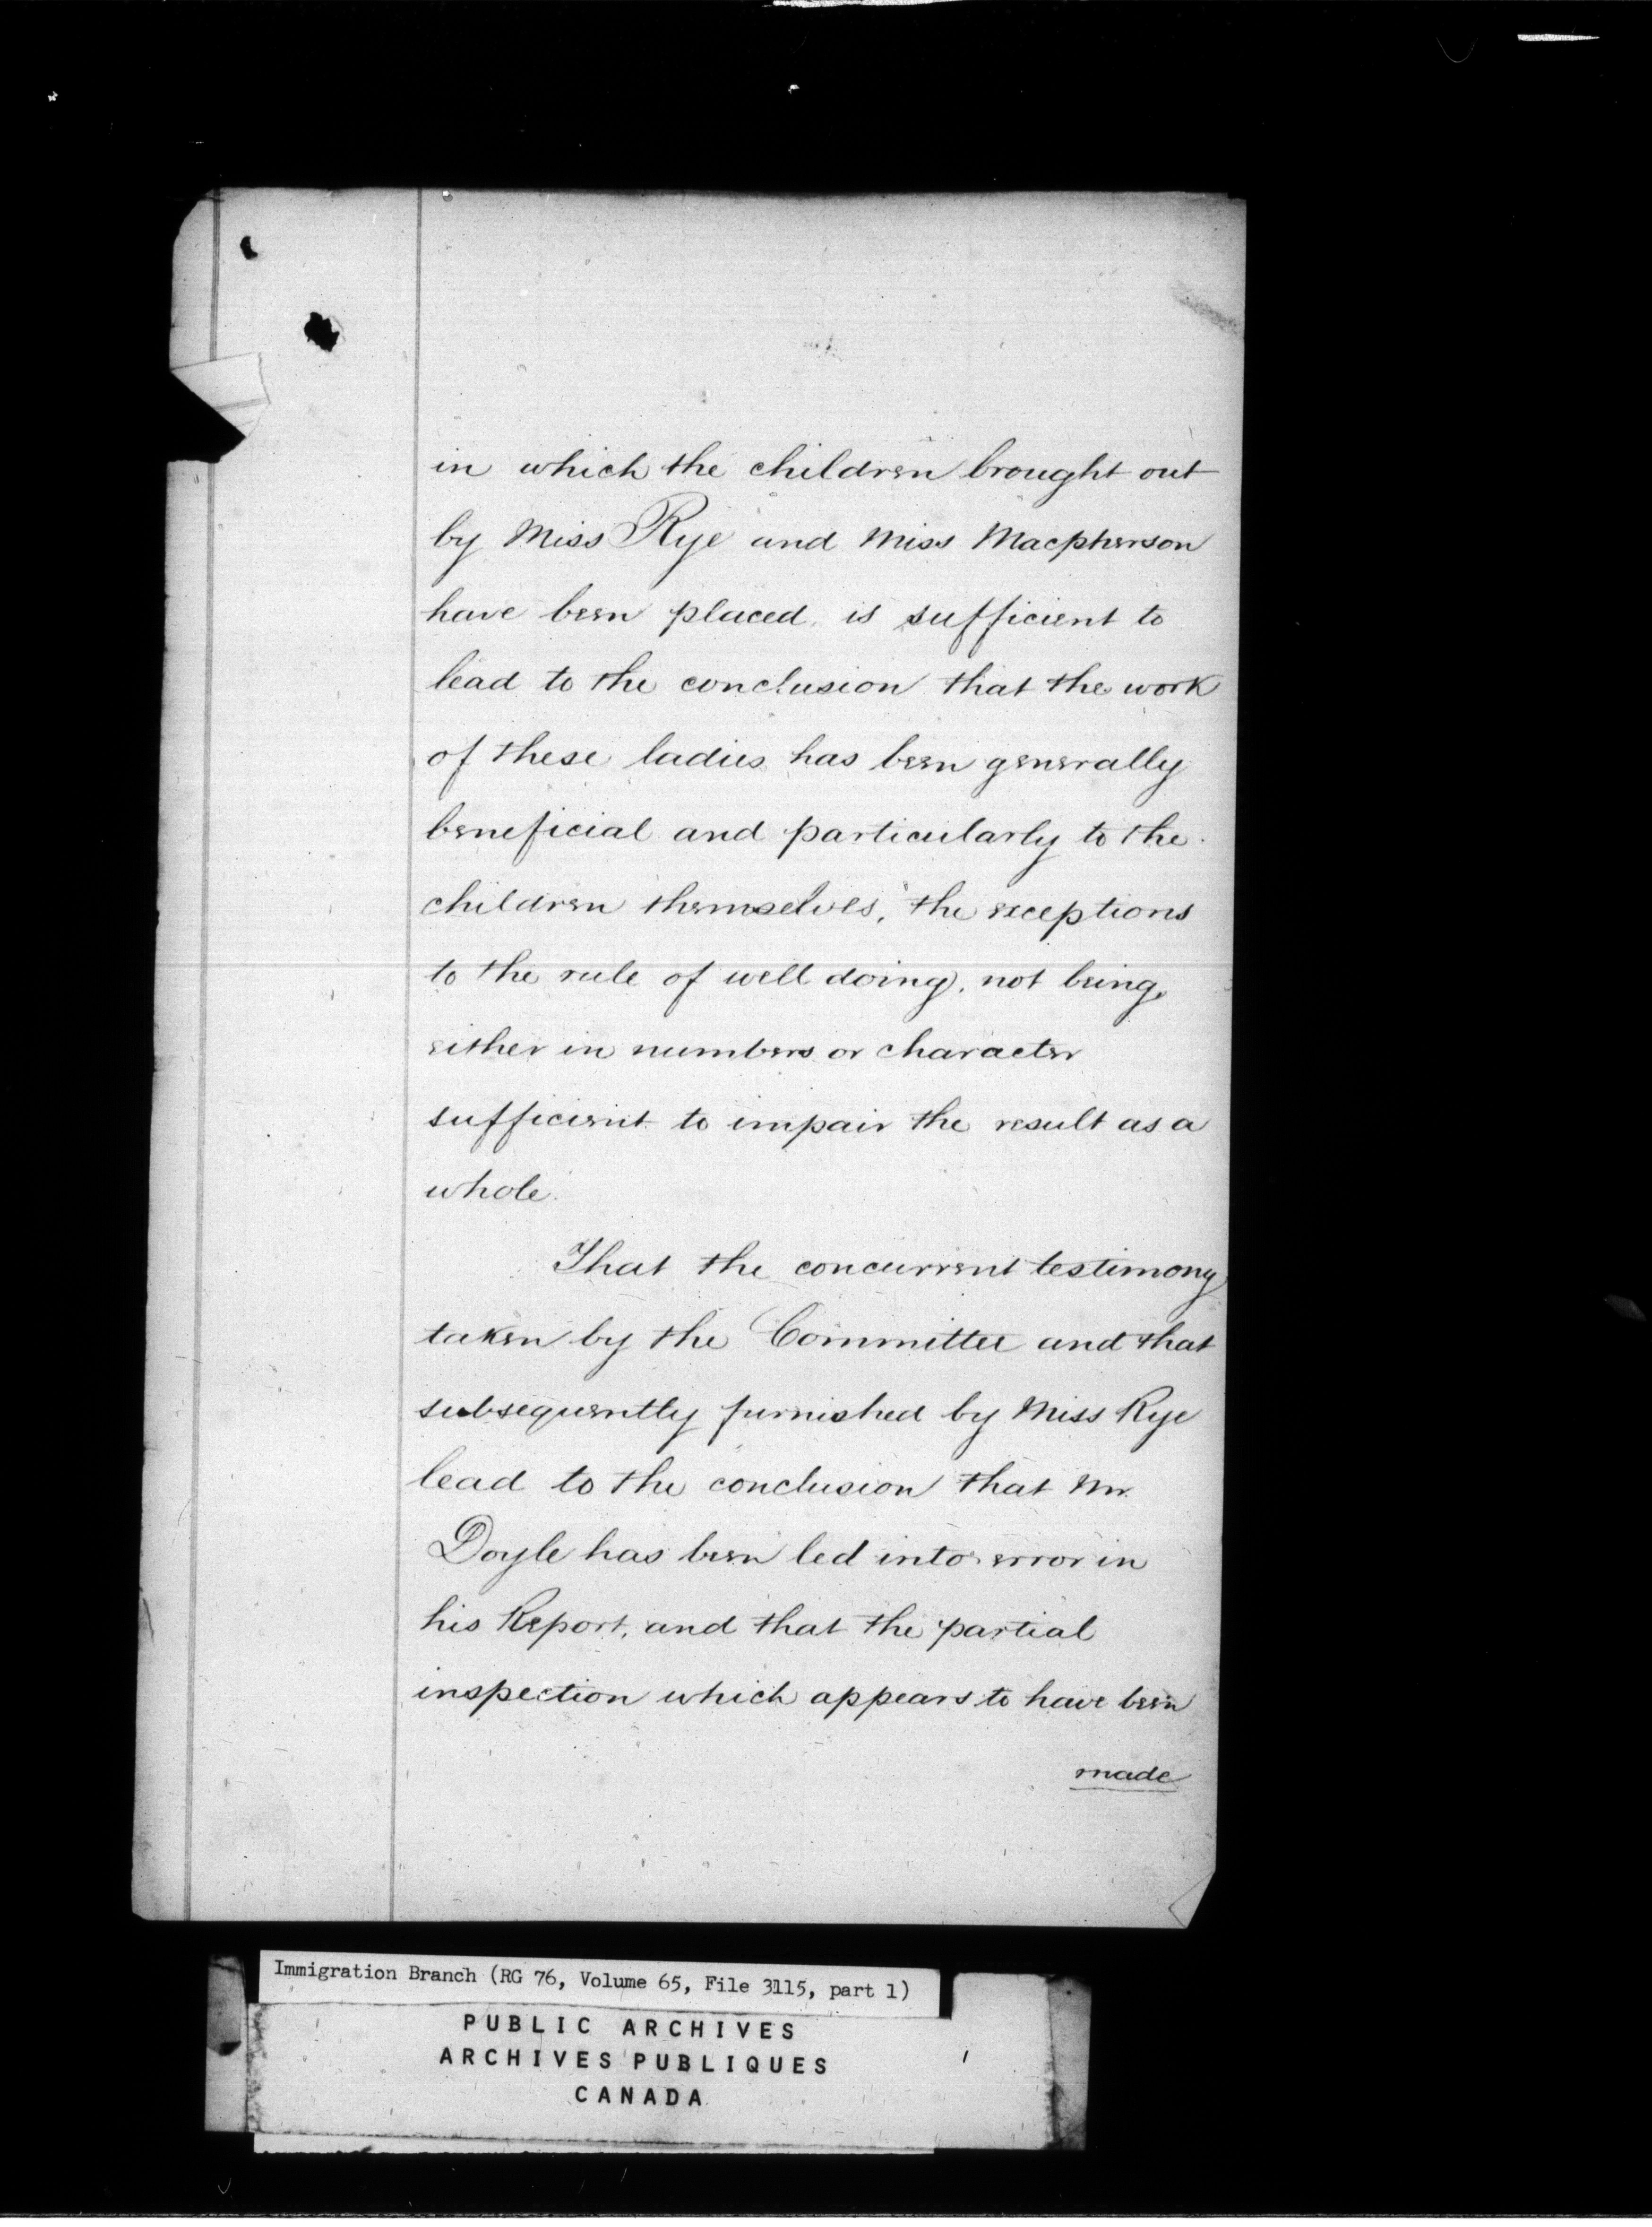 in which the children brought out
by Miss Rye and Miss Macpherson
have been placed, is sufficient to
lead to the conclusion that the work
of these ladies has been generally
beneficial and particularly to the
children themselves, the exceptions
to the rule of well doing, not being,
either in numbers or character
sufficient to impair the result as a
whole.
That the concurrent testimony
taken by the Committee and that
subsequently furnished by Miss Rye
lead to the conclusion that Mr.
Doyle has been led into error in
his Report, and that the partial
inspection which appears to have been
made
Immigration Branch (RG 76, Volume 65, File 3115, part 1)
PUBLIC ARCHIVES
ARCHIVES PUBLIQUES
CANADA